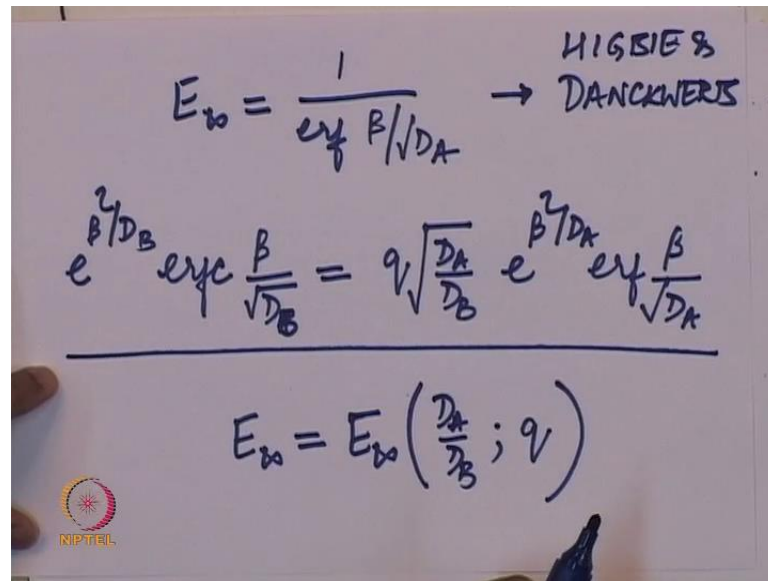 E∞ = 1 / erf β/√D_A → HIGBIE & DANCKWERTS
e^(β²/D_B) erfc β/√D_B = q √(D_A/D_B) e^(β²/D_A) erf β/√D_A
E∞ = E∞ (D_A/D_B ; q)
NPTEL